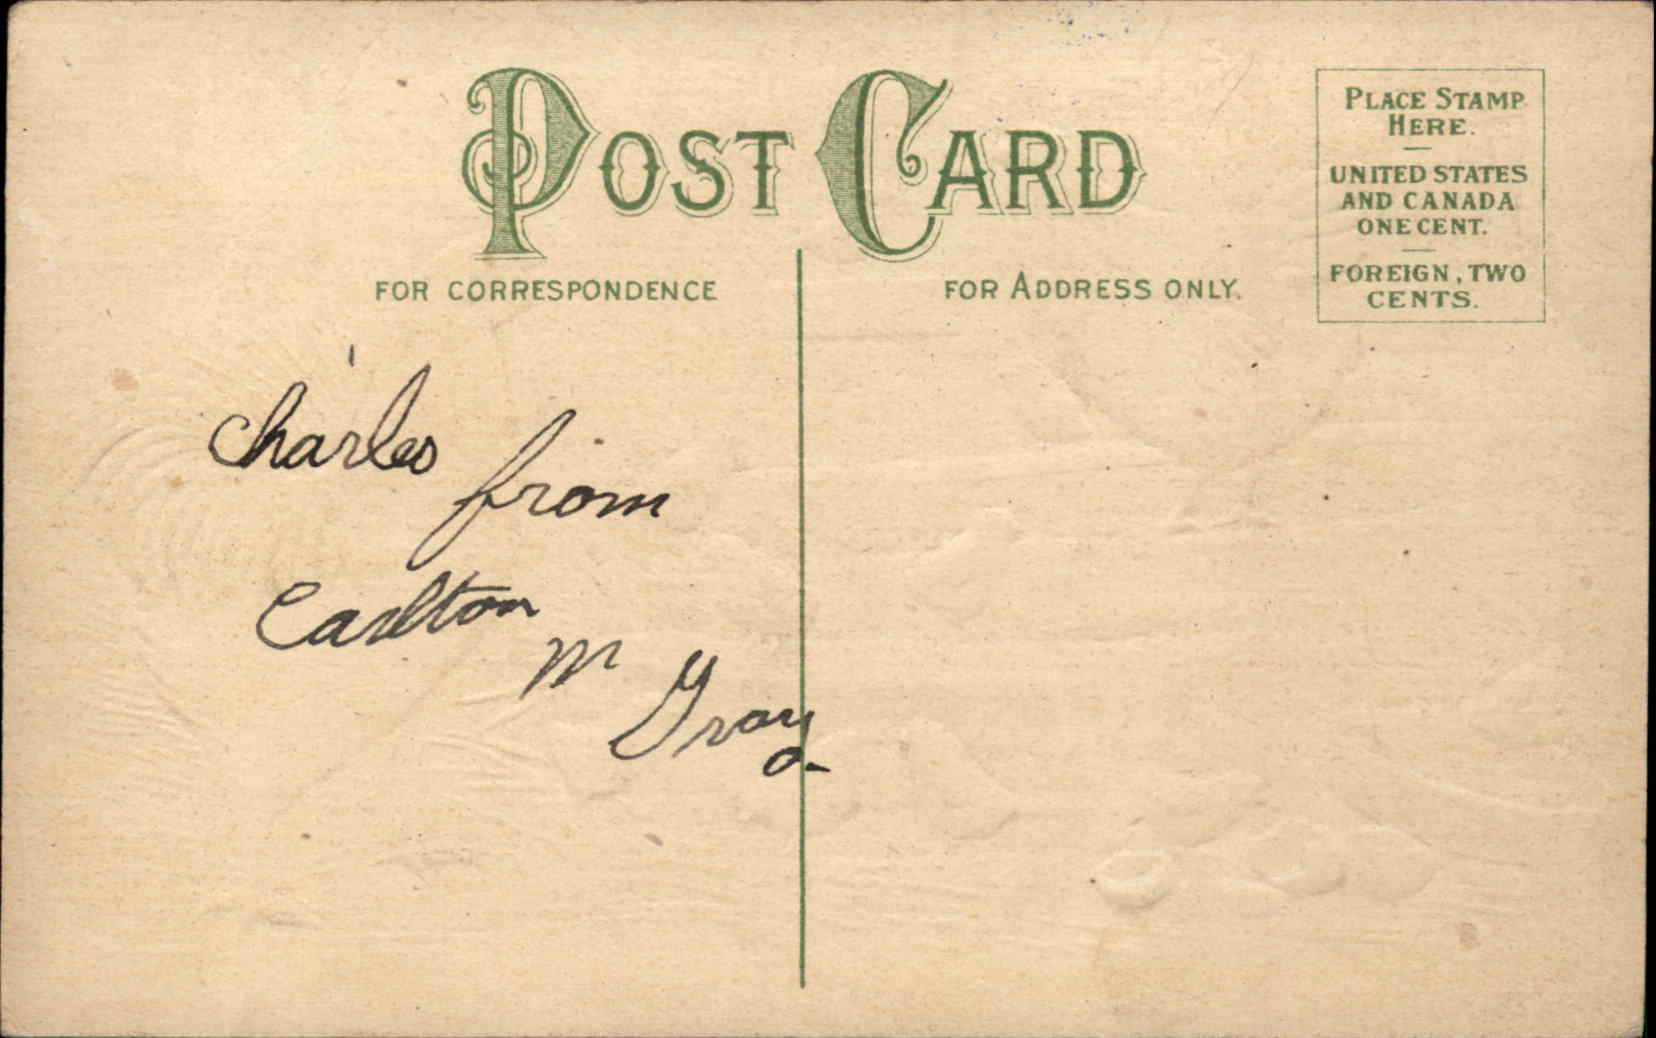 POST CARD
FOR CORRESPONDENCE
FOR ADDRESS ONLY.
PLACE STAMP
HERE.
UNITED STATES
AND CANADA
ONE CENT.
FOREIGN, TWO
CENTS.
Charles
from
Carlton
M
Gray